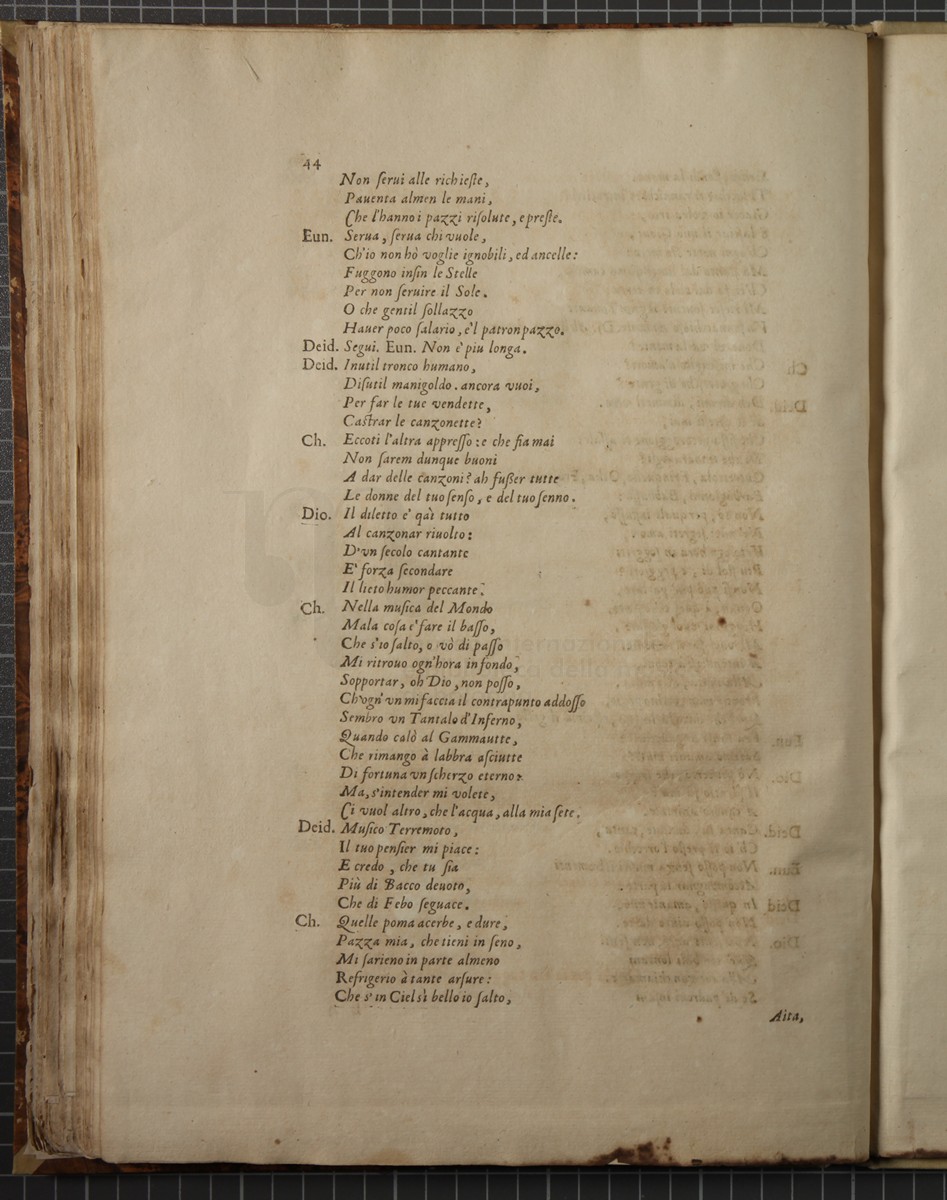 44
Non ſerui alle richieſte,
Pauenta almen le mani,
Che l'hanno i pazzi riſolute, e preſte.
Eun. Serua, ſerua chi vuole,
Ch'io non hò voglie ignobili, ed ancelle:
Fuggono inſin le Stelle
Per non ſeruire il Sole.
O che gentil ſollazzo
Hauer poco ſalario, e'l patron pazzo.
Deid. Segui. Eun. Non è piu longa.
Deid. Inutil tronco humano,
Diſutil manigoldo. ancora vuoi,
Per far le tue vendette,
Caſtrar le canzonette?
Ch. Eccoti l'altra appreſſo: e che ſia mai
Non ſarem dunque buoni
A dar delle canzoni? ah fußer tutte
Le donne del tuo ſenſo, e del tuo ſenno.
Dio. Il diletto e' quì tutto
Al canzonar riuolto:
D'vn ſecolo cantante
E' forza ſecondare
Il lieto humor peccante.
Ch. Nella muſica del Mondo
Mala coſa e' fare il baſſo,
Che s'io ſalto, o vò di paſſo
Mi ritrouo ogn'hora in fondo,
Sopportar, oh Dio, non poſſo,
Ch'ogn'vn mi faccia il contrapunto addoſſo
Sembro vn Tantalo d'Inferno,
Quando calò al Gammautte,
Che rimango à labbra aſciutte
Di fortuna vn ſcherzo eterno:
Ma, s'intender mi volete,
Ci vuol altro, che l'acqua, alla mia ſete.
Deid. Muſico Terremoto,
Il tuo penſier mi piace:
E credo, che tu ſia
Più di Bacco deuoto,
Che di Febo ſeguace.
Ch. Quelle poma acerbe, e dure,
Pazza mia, che tieni in ſeno,
Mi ſarieno in parte almeno
Refrigerio à tante arſure:
Che s'in Ciel sì bello io ſalto,
Aita,